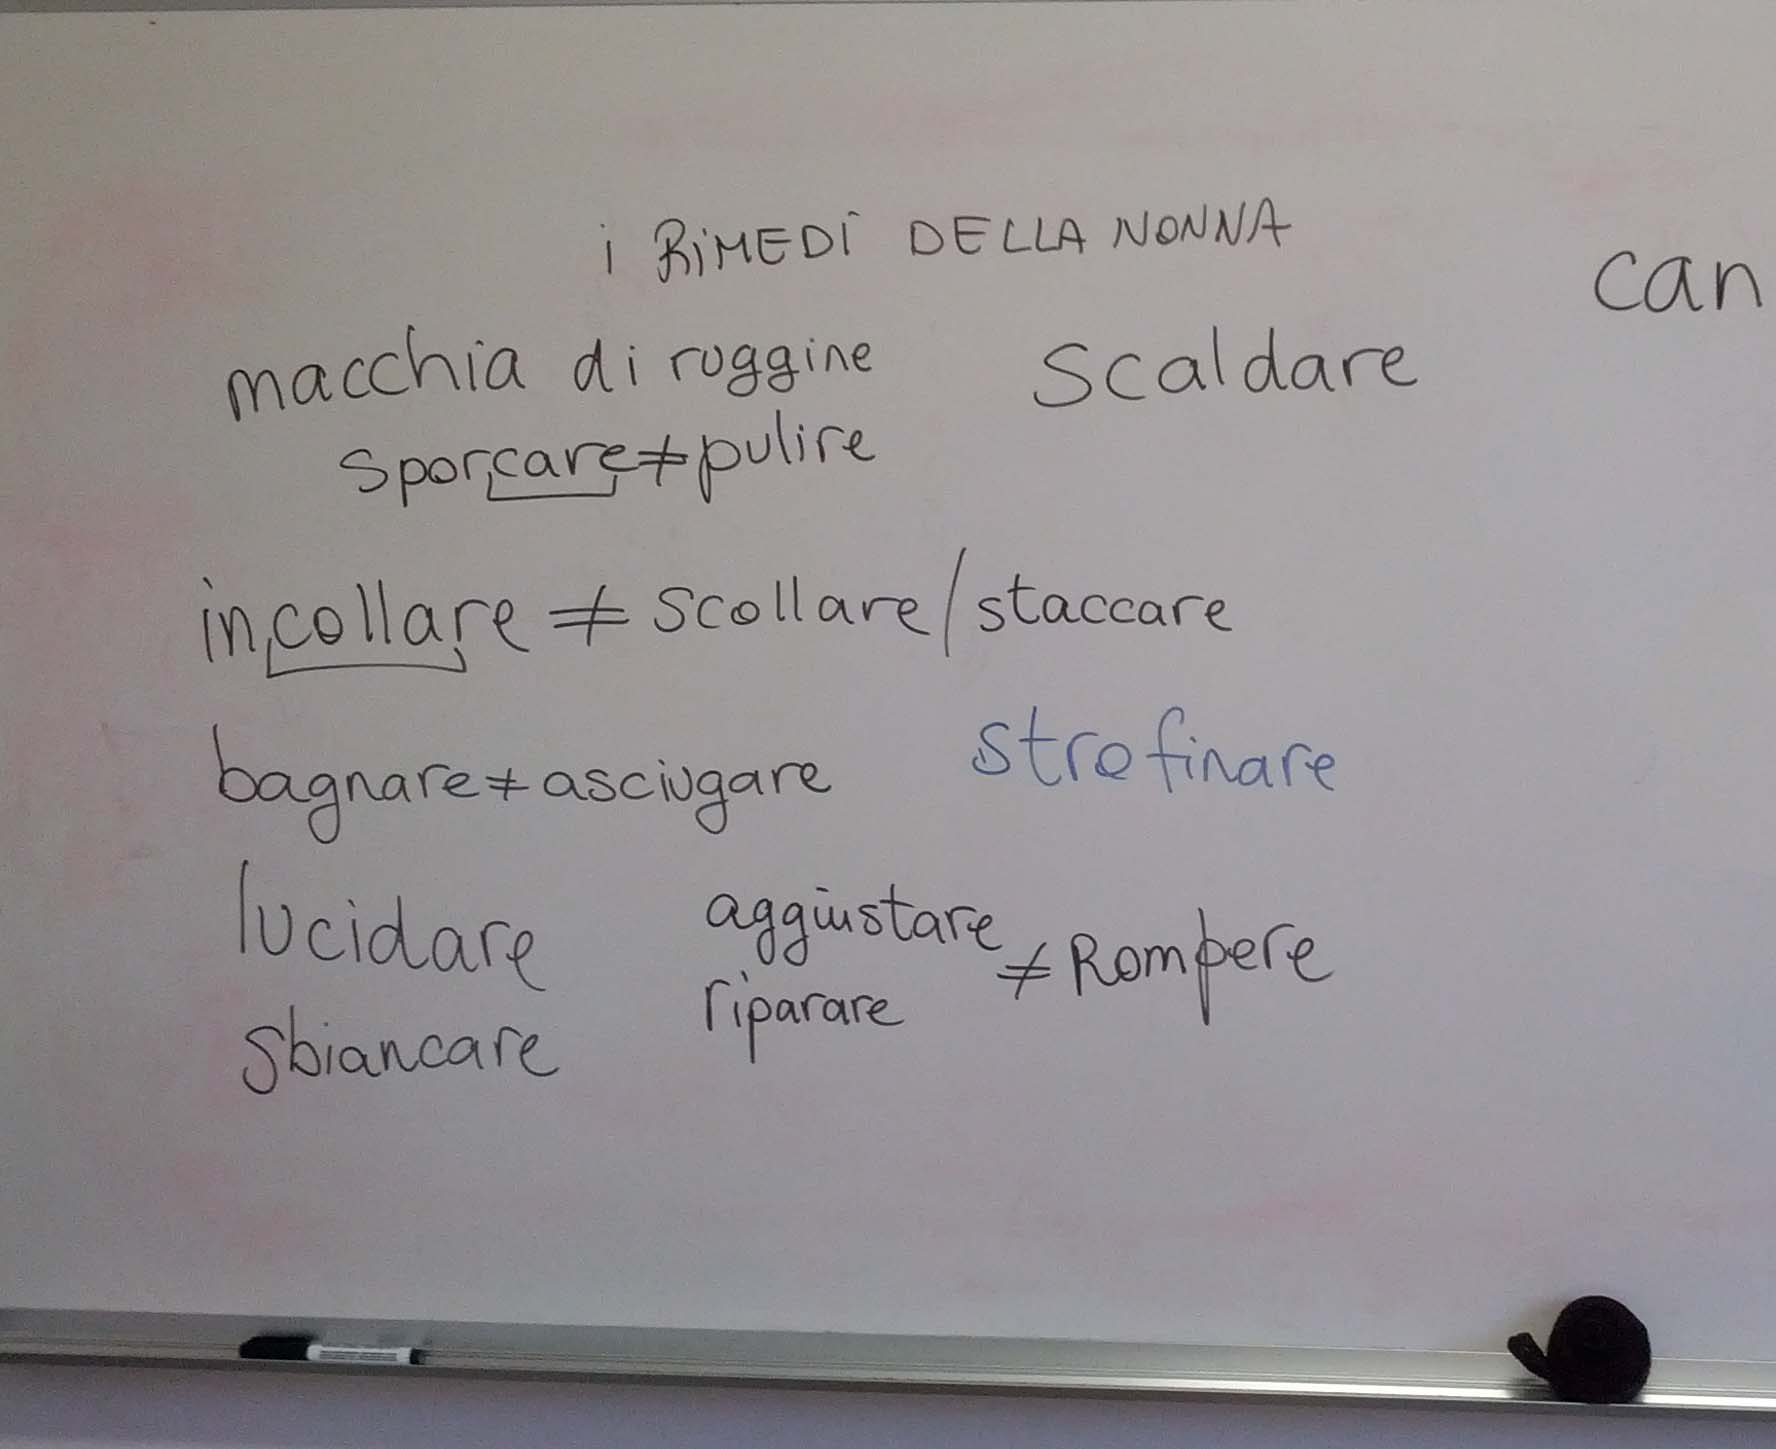 i RiMEDi DELLA NONNA
can
macchia di ruggine
scaldare
sporcare≠pulire
incollare ≠ scollare/staccare
bagnare≠asciugare
strofinare
lucidare
aggiustare
riparare
≠ Rompere
sbiancare